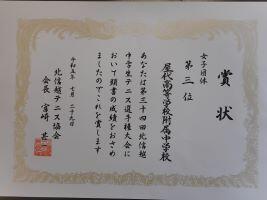 賞状
女子団体
第三位
屋代高等学校附属中学校
あなたは第三十四回北信越
中学生テニス選手権大会に
おいて頭書の成績をおさめ
ましたのでこれを賞します
令和五年七月二十九日
北信越テニス協会
会長